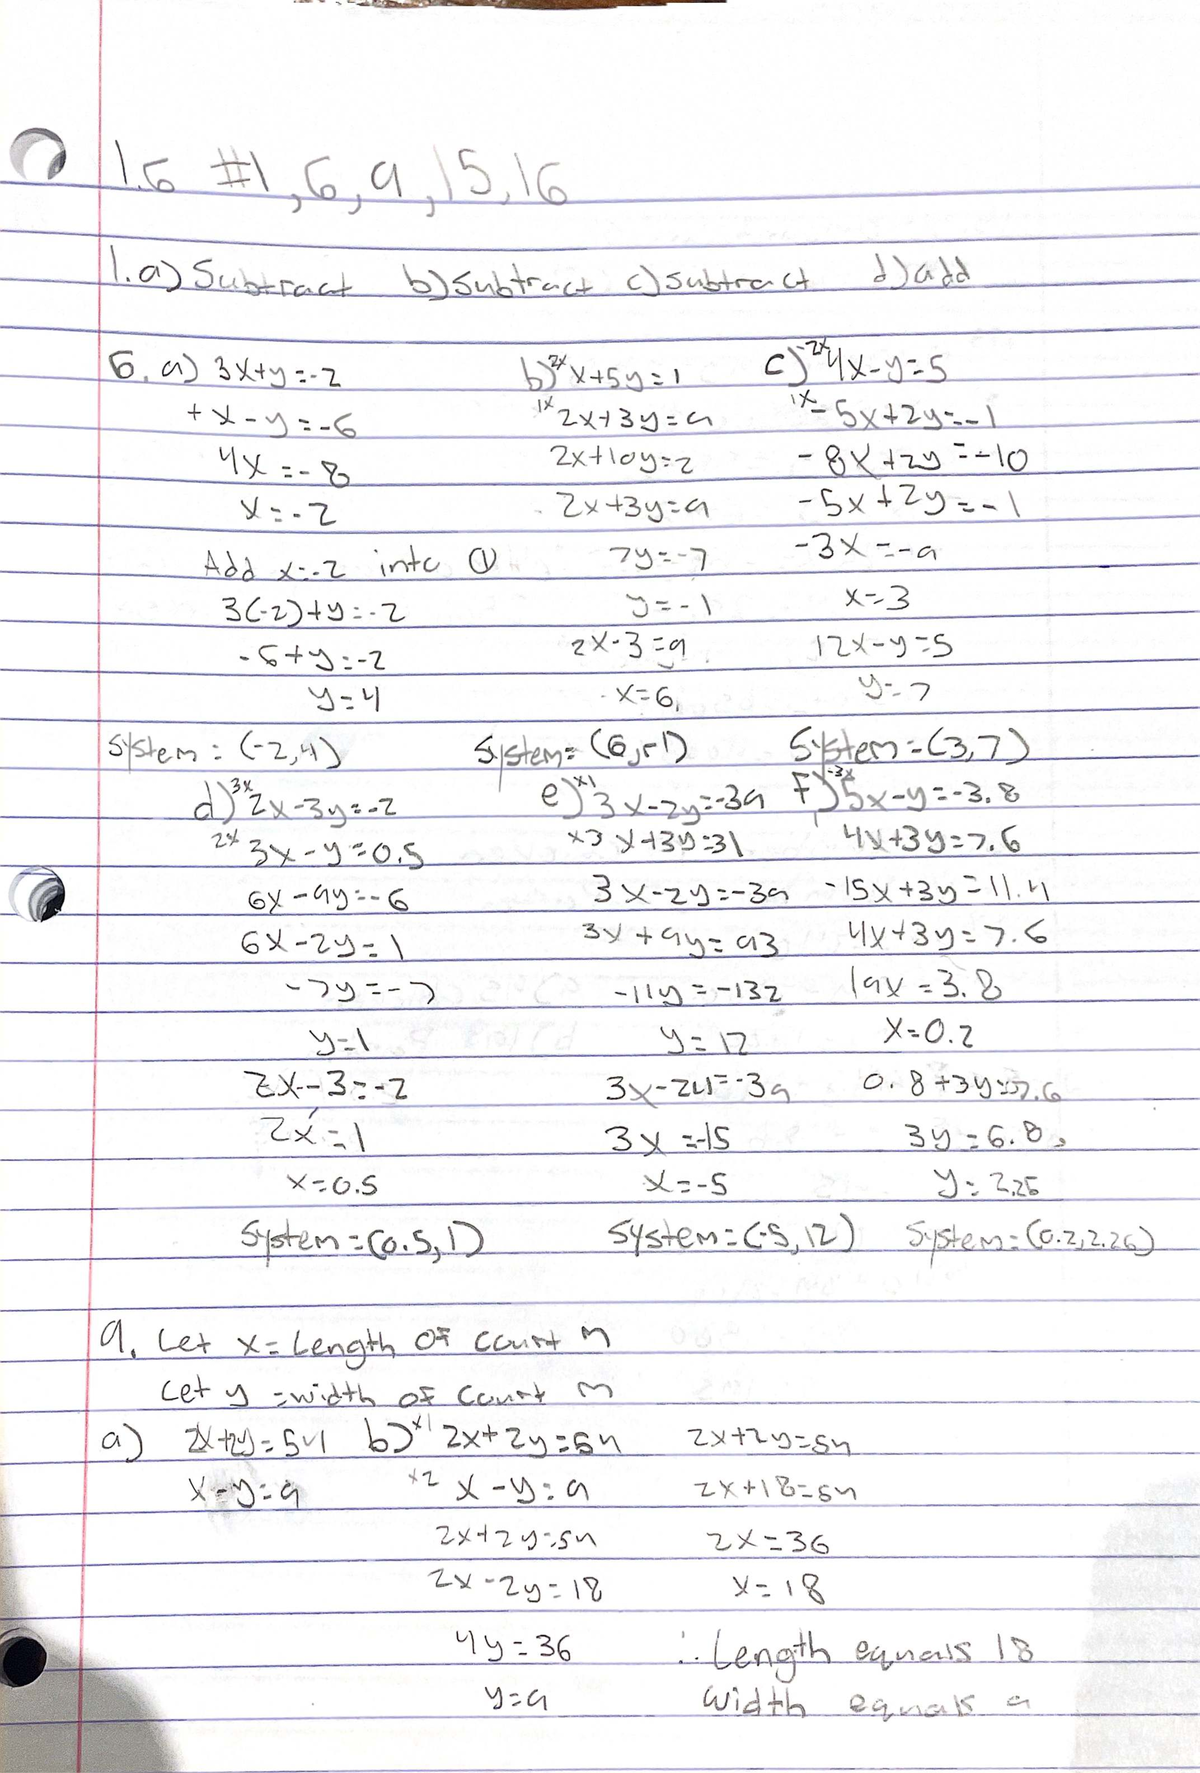 1.6 #1,6,9,15,16
1.a) Subtract b) subtract c) subtract d) add
6. a) 3x+y=-2
+x-y=-6
4x=-8
x=-2
Add x=-2 into ①
3(-2)+y=-2
-6+y=-2
y=4
System: (-2,4)
b) 2x x+5y=1
1x 2x+3y=9
2x+10y=2
2x+3y=9
7y=-7
y=-1
2x-3=9
x=6
System= (6,-1)
c) -2x 4x-y=5
1x -5x+2y=-1
-8x+2y=-10
-5x+2y=-1
-3x=-9
x=3
12x-y=5
y=7
System=(3,7)
d) 3x 2x-3y=-2
2x 3x-y=0.5
6x-9y=-6
6x-2y=1
-7y=-7
y=1
2x-3=-2
2x=1
x=0.5
System=(0.5,1)
e) x1 3x-2y=-39
x3 x+3y=31
3x-2y=-39
3x+9y=93
-11y=-132
y=12
3x-24=-39
3x=-15
x=-5
System=(-5,12)
f) -3x 5x-y=-3.8
4x+3y=7.6
-15x+3y=11.4
4x+3y=7.6
19x=3.8
x=0.2
0.8+3y=7.6
3y=6.8
y=2.26
System=(0.2,2.26)
9. Let x=Length of court m
Let y=width of court m
a) 2x+2y=54
x-y=9
b) x1 2x+2y=54
x2 x-y=9
2x+2y=54
2x-2y=18
4y=36
y=9
2x+2y=54
2x+18=54
2x=36
x=18
∴ Length equals 18
width equals 9